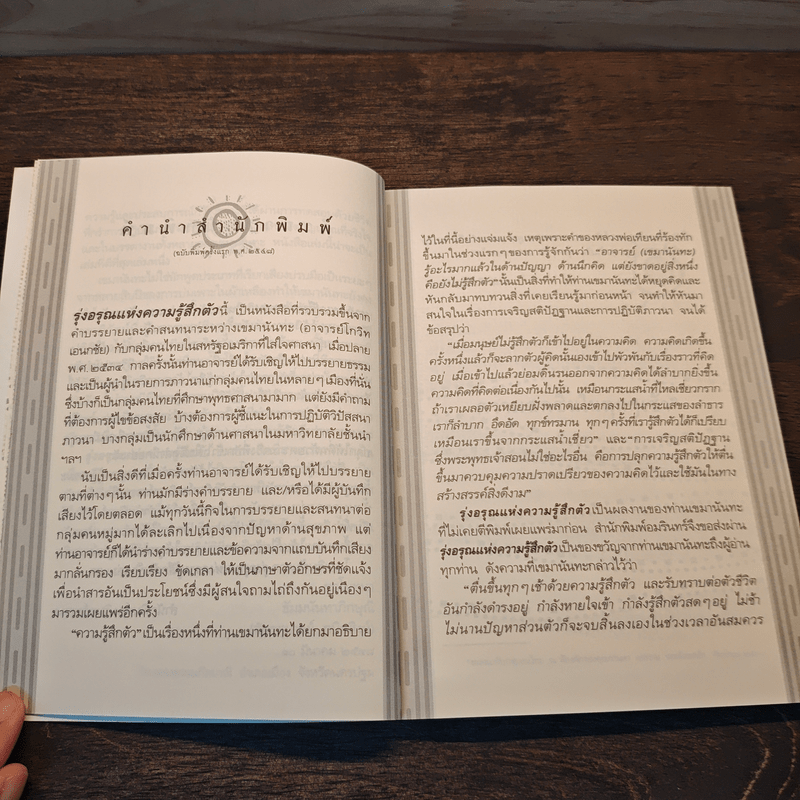 คำนำสำนักพิมพ์
(ฉบับพิมพ์ครั้งแรก พ.ศ. ๒๕๔๘)
รุ่งอรุณแห่งความรู้สึกตัวนี้ เป็นหนังสือที่รวบรวมขึ้นจาก
คำบรรยายและคำสนทนาระหว่างเขมานันทะ (อาจารย์โกวิท
เอนกชัย) กับกลุ่มคนไทยในสหรัฐอเมริกาที่ใส่ใจศาสนา เมื่อปลาย
พ.ศ. ๒๕๓๔ กาลครั้งนั้นท่านอาจารย์ได้รับเชิญให้ไปบรรยายธรรม
และเป็นผู้นำในรายการภาวนาแก่กลุ่มคนไทยในหลายๆ เมืองที่นั่น
ซึ่งบ้างก็เป็นกลุ่มคนไทยที่ศึกษาพุทธศาสนามามาก แต่ยังมีคำถาม
ที่ต้องการผู้ไขข้อสงสัย บ้างต้องการผู้ชี้แนะในการปฏิบัติวิปัสสนา
ภาวนา บางกลุ่มเป็นนักศึกษาด้านศาสนาในมหาวิทยาลัยชั้นนำ
ฯลฯ
นับเป็นสิ่งดีที่เมื่อครั้งท่านอาจารย์ได้รับเชิญให้ไปบรรยาย
ตามที่ต่างๆ นั้น ท่านมักมีร่างคำบรรยาย และ/หรือได้มีผู้บันทึก
เสียงไว้โดยตลอด แม้ทุกวันนี้กิจในการบรรยายและสนทนาต่อ
กลุ่มคนหมู่มากได้ละเลิกไปเนื่องจากปัญหาด้านสุขภาพ แต่
ท่านอาจารย์ก็ได้นำร่างคำบรรยายและข้อความจากแถบบันทึกเสียง
มากลั่นกรอง เรียบเรียง ขัดเกลา ให้เป็นภาษาตัวอักษรที่ชัดแจ้ง
เพื่อนำสารอันเป็นประโยชน์ซึ่งมีผู้สนใจถามไถ่ถึงกันอยู่เนืองๆ
มารวมเผยแพร่อีกครั้ง
"ความรู้สึกตัว" เป็นเรื่องหนึ่งที่ท่านเขมานันทะได้ยกมาอธิบาย
ไว้ในที่นี้อย่างแจ่มแจ้ง เหตุเพราะคำของหลวงพ่อเทียนที่ร้องทัก
ขึ้นมาในช่วงแรกๆ ของการรู้จักกันว่า "อาจารย์ (เขมานันทะ)
รู้อะไรมากแล้วในด้านปัญญา ด้านนึกคิด แต่ยังขาดอยู่สิ่งหนึ่ง
คือยังไม่รู้สึกตัว" นั้นเป็นสิ่งที่ทำให้ท่านเขมานันทะได้หยุดคิดและ
หันกลับมาทบทวนสิ่งที่เคยเรียนรู้มาก่อนหน้า จนทำให้หันมา
สนใจในเรื่องการเจริญสติปัฏฐานและการปฏิบัติภาวนา จนได้
ข้อสรุปว่า
"เมื่อมนุษย์ไม่รู้สึกตัวก็เข้าไปอยู่ในความคิด ความคิดเกิดขึ้น
ครั้งหนึ่งแล้วก็จะลากตัวผู้คิดนั้นเองเข้าไปพัวพันกับเรื่องราวที่คิด
อยู่ เมื่อเข้าไปแล้วย่อมดิ้นรนออกจากความคิดได้ลำบากยิ่งขึ้น
ความคิดที่คิดต่อเนื่องกันไปนั้น เหมือนกระแสน้ำที่ไหลเชี่ยวกราก
ถ้าเราเผลอตัวเหยียบฝั่งพลาดและตกลงไปในกระแสของลำธาร
เราก็ลำบาก อึดอัด ทุกข์ทรมาน ทุกๆ ครั้งที่เรารู้สึกตัวได้ก็เปรียบ
เหมือนเราขึ้นจากกระแสน้ำเชี่ยว" และ "การเจริญสติปัฏฐาน
ซึ่งพระพุทธเจ้าสอนไม่ใช่อะไรอื่น คือการปลุกความรู้สึกตัวให้ตื่น
ขึ้นมาควบคุมความปราดเปรียวของความคิดไว้และใช้มันในทาง
สร้างสรรค์สิ่งดีงาม"
รุ่งอรุณแห่งความรู้สึกตัว เป็นผลงานของท่านเขมานันทะ
ที่ไม่เคยตีพิมพ์เผยแพร่มาก่อน สำนักพิมพ์อมรินทร์จึงขอส่งผ่าน
รุ่งอรุณแห่งความรู้สึกตัว เป็นของขวัญจากท่านเขมานันทะถึงผู้อ่าน
ทุกท่าน ดังความที่เขมานันทะกล่าวไว้ว่า
"ตื่นขึ้นทุกๆ เช้าด้วยความรู้สึกตัว และรับทราบต่อตัวชีวิต
อันกำลังดำรงอยู่ กำลังหายใจเข้า กำลังรู้สึกตัวสดๆ อยู่ ไม่ช้า
ไม่นานปัญหาส่วนตัวก็จะจบสิ้นลงเองในช่วงเวลาอันสมควร